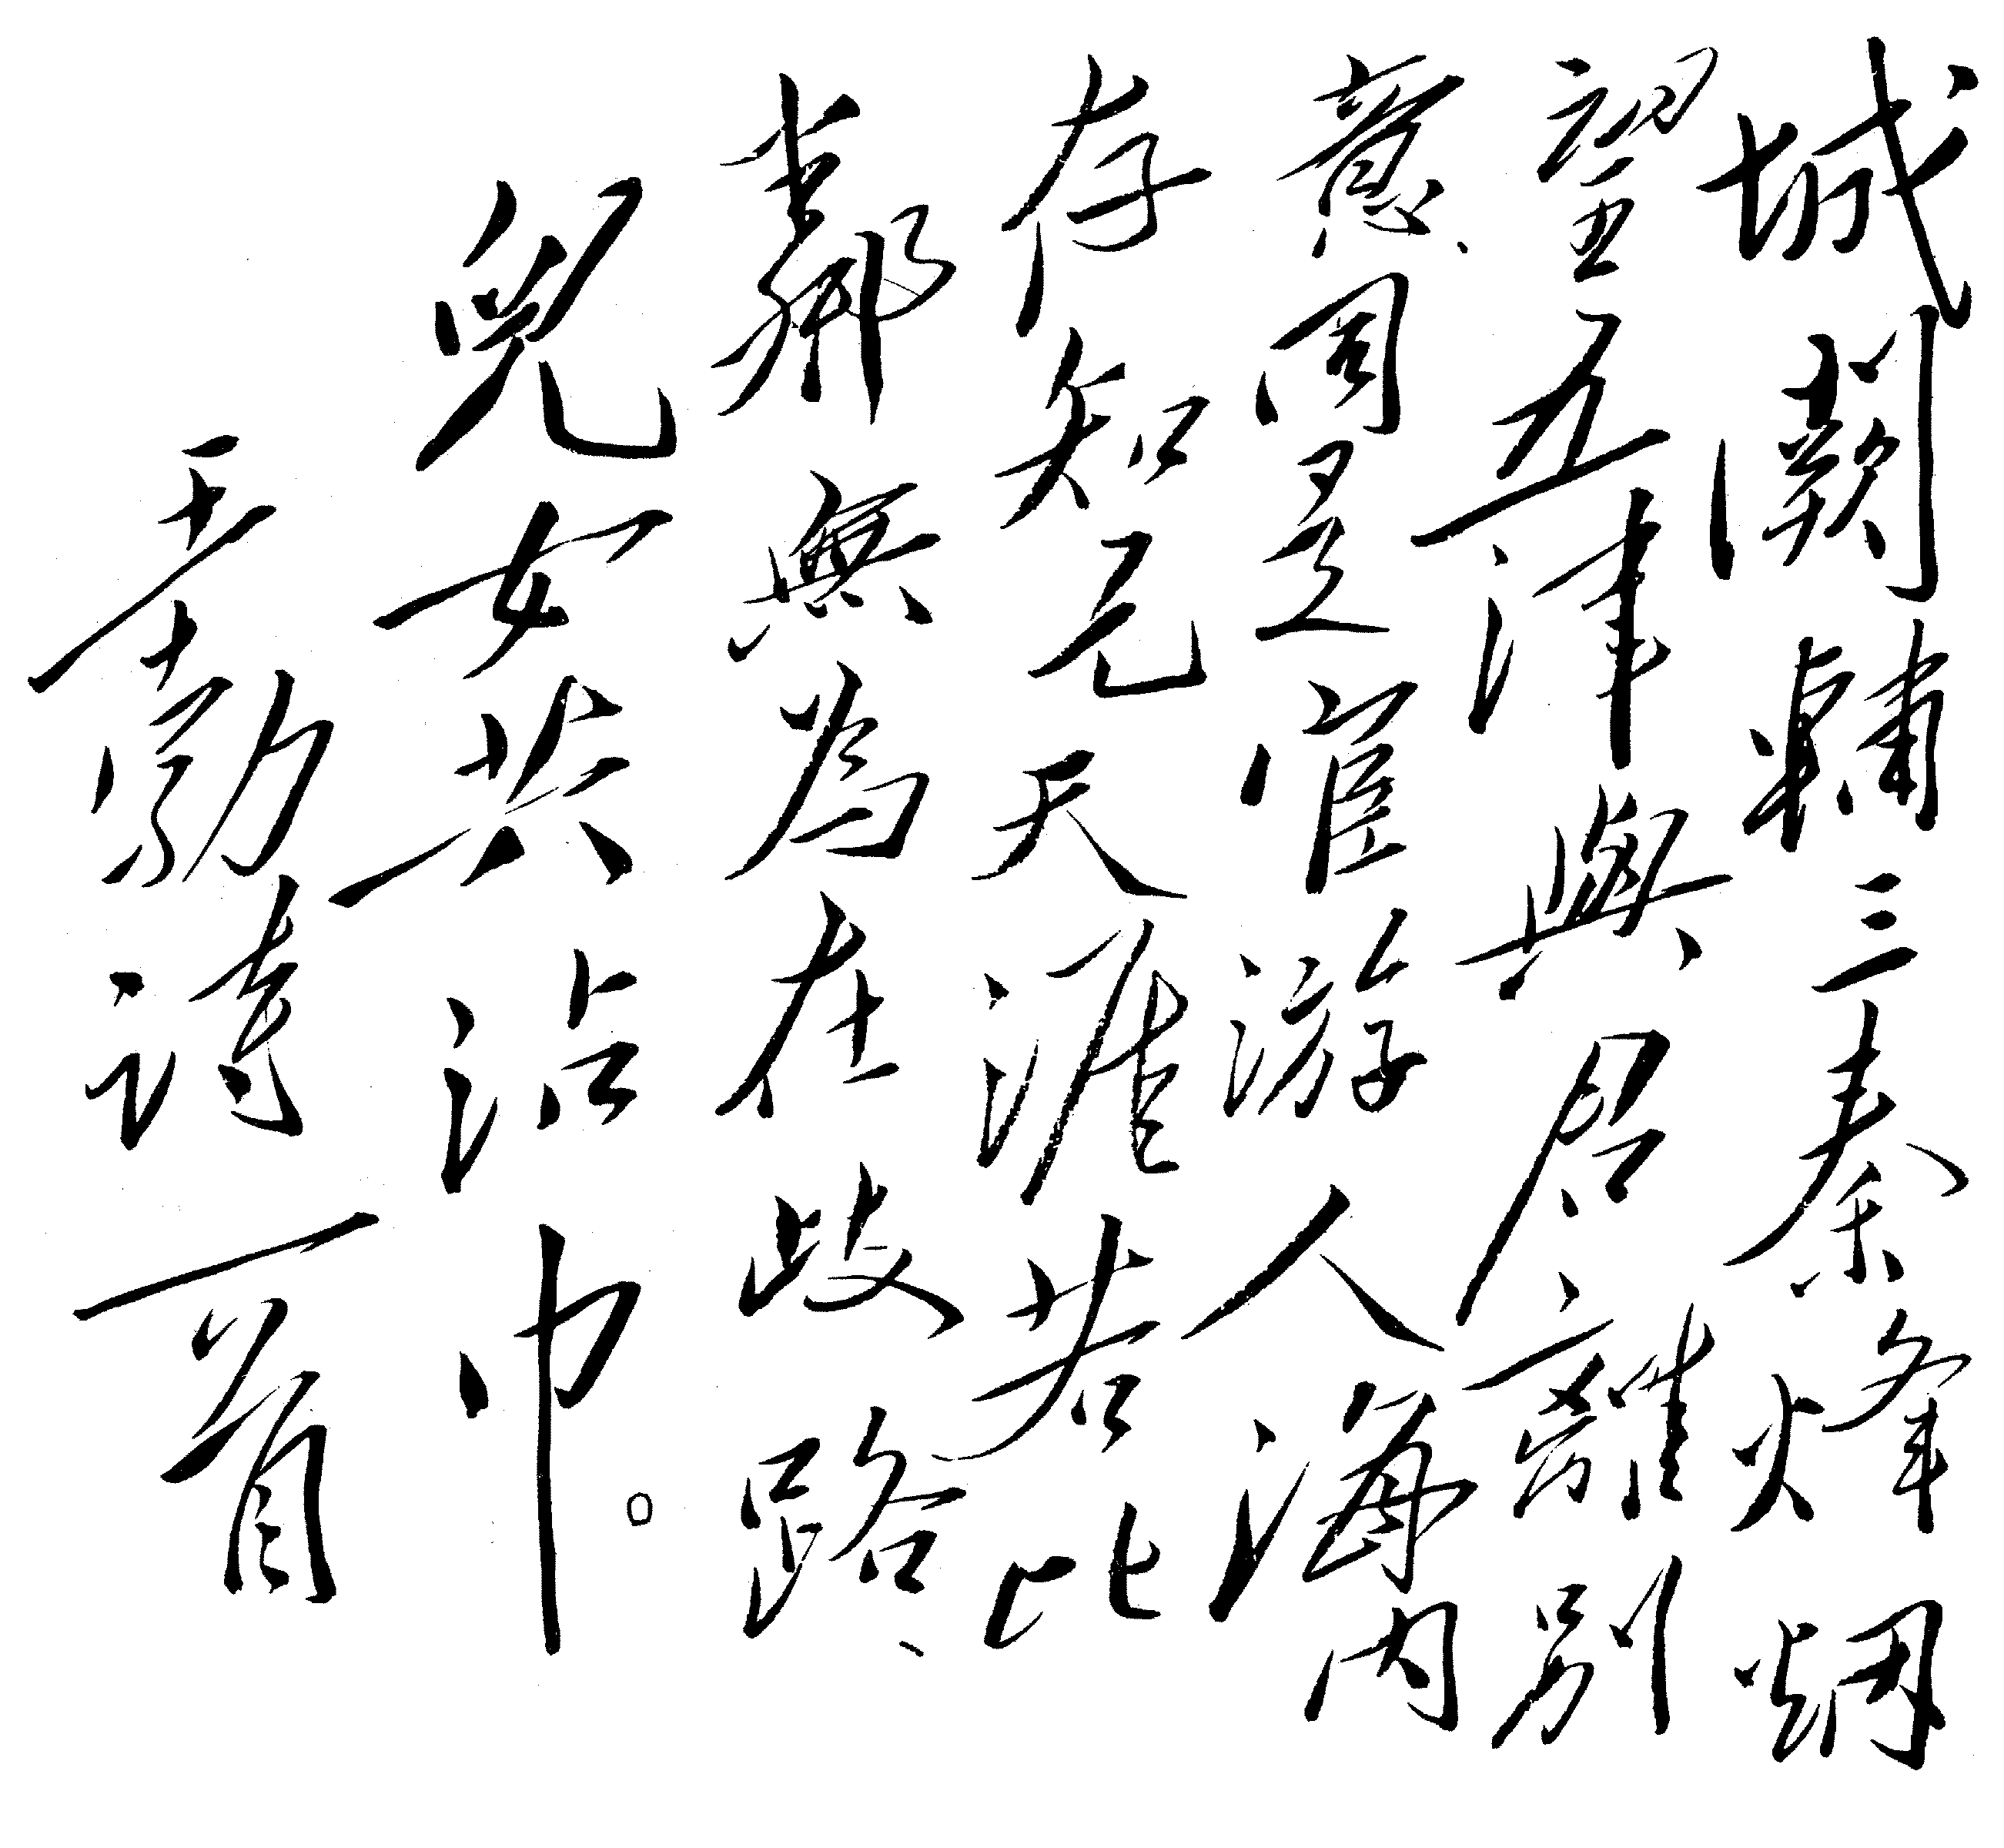 城闕輔三秦烽烟
望五津與君離別
意同是宦游人海内
存知己天涯若比
鄰無為在歧路、
兒女共沾巾。
王勃詩一首